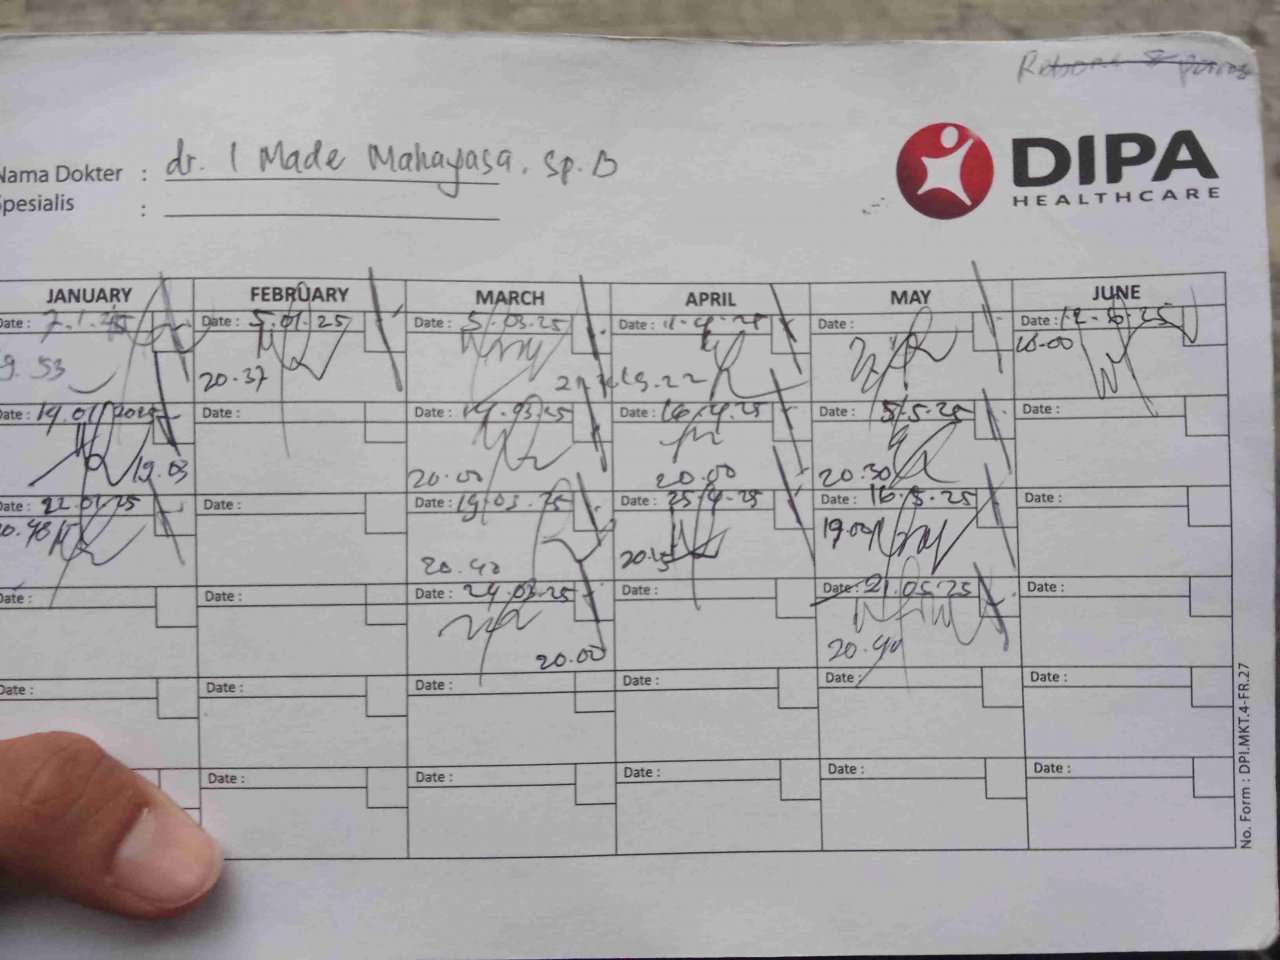 DIPA
HEALTHCARE
Nama Dokter : dr. I Made Mahayasa, Sp.B
Spesialis :
JANUARY FEBRUARY MARCH APRIL MAY JUNE
Date : 7.1.25 Date : 5.01.25 Date : 5.03.25 Date : Date : Date : 12.6.25
9.53 20.37 19.22 16.00
Date : 14.01.2025 Date : Date : 14.03.25 Date : 16.4.25 Date : 5.5.25 Date :
19.03 20.00 20.00 20.30
Date : 22.01.25 Date : Date : 19.03.25 Date : 25.4.25 Date : 16.5.25 Date :
20.48 20.40 20.15 19.00
Date : Date : Date : 24.03.25 Date : Date : 21.05.25 Date :
20.00 20.40
Date : Date : Date : Date : Date : Date :
Date : Date : Date : Date : Date :
No. Form : DPI.MKT.4-FR.27